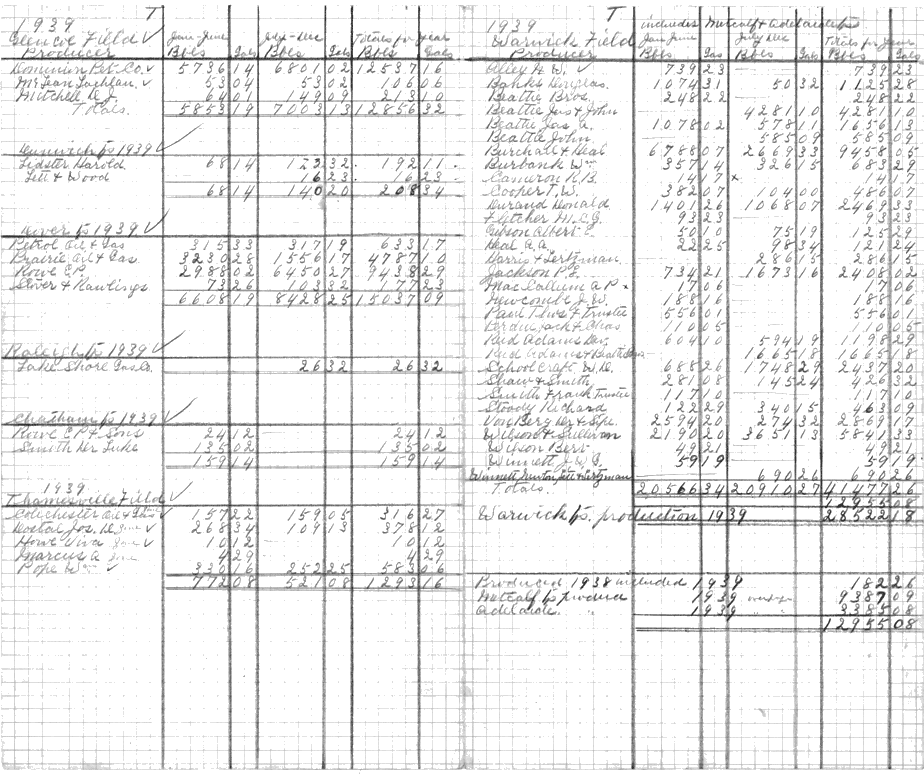 1939 T
Glencoe Field ✓ Jan-June July-Dec Totals for year
Producer Bbls Gals Bbls Gals Bbls Gals
Dominion Pet. Co. ✓ 5736 14 6801 02 12537 16
McLean Lachlan ✓ 53 04 53 02 106 06
Mitchell 64 01 149 09 213 10
Totals. 5853 19 7003 13 12856 32
Dunwich tp 1939 ✓
Lidster Harold 68 14 123 32 192 11
Lett & Wood 16 23 16 23
68 14 140 20 208 34
Dover tp 1939 ✓
Petrol Oil & Gas 315 33 317 19 633 17
Prairie Oil & Gas 3230 28 1556 17 4787 10
Rowe C.P. 2988 02 6450 27 9438 29
Stover & Rawlings 73 26 103 32 177 23
6608 19 8428 25 15037 09
Raleigh tp 1939 ✓
Lake Shore Gas Co. 26 32 26 32
Chatham tp 1939 ✓
Rowe C.P. & Sons 24 12 24 12
Smith Der Luke 135 02 135 02
159 14 159 14
1939
Thamesville Field ✓
Colchester Oil & 157 22 159 05 316 27
Doctal Jos. 268 34 109 13 378 12
Howe Viva June ✓ 10 12 10 12
Marcus A June 4 29 4 29
Pope Wm ✓ 330 16 252 25 583 06
772 08 521 08 1293 16
1939 T includes Metcalf & Adelaide tps
Warwick Field Jan June July Dec Totals for year
Producer Bbls Gas Bbls Gals Bbls Gals
Alley H.W. ✓ 739 23 739 23
Banks Douglas 1074 31 50 32 1125 28
Beattie Bros. 248 22 248 22
Beattie Jas & John 428 11 0 428 11 0
Beattie Jas. A. 1078 02 578 11 1656 13
Beattie John 585 09 585 09
Burchall & Heal 6788 07 2669 33 9458 05
Burbank Wm 357 14 326 15 683 29
Cameron R.B. 14 17 × 14 17
Cooper T.W. 382 07 104 00 486 07
Durand Donald 1401 26 1068 07 2469 33
Fletcher H.C.G. 93 23 93 23
Gibson Albert E. 50 10 75 19 125 29
Heal A.A. 22 25 98 34 121 24
Harris & Sertzman 286 15 286 15
Jackson P.E. 734 21 1673 16 2408 02
MacCallum A P × 17 06 17 06
Newcombe J.W. 188 16 188 16
Paul Thos F Trustee 556 01 556 01
Perdue Jack & Chas 110 05 110 05
Reid Adams 604 10 594 19 1198 29
Reid Adams & Beattie 1665 18 1665 18
Schoolcraft W.D. 688 26 1748 29 2437 20
Shaw & Smith 281 08 145 24 426 32
Smith Frank Trustee 117 10 117 10
Stoody Richard 122 29 340 15 463 09
Von Berg Der & Spe. 2594 20 274 32 2869 17
Wilson & Sullivan 2190 20 3651 13 5841 33
Wilson Bert 49 21 49 21
Winnett J.W.G. 59 19 59 19
Winnett, Newton, Lett & Sertzman 690 26 690 26
Totals. 20566 34 20910 27 41477 26
12955 08
Warwick tp. production 1939 28522 18
Produced 1938 included 1939 182 26
Metcalf tp produce 1939 9387 09
Adelaide " 1939 " " 3385 08
12955 08